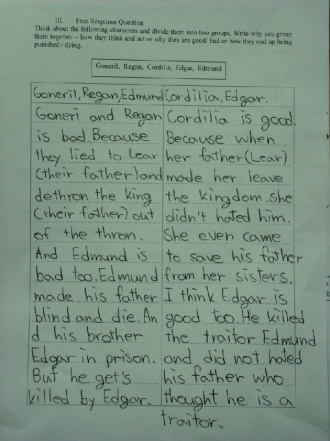 III. Free Response Question
Think about the following characters and divide them into two groups. Write why you group
them together – how they think and act or why they are good/ bad or how they end up being
punished / dying.
Goneril, Regan, Cordilia, Edgar, Edmund
Goneril, Regan, Edmund
Goneri and Regan
is bad Because
they lied to Lear
(their father) and
dethron the king
(their father) out
of the thron.
And Edmund is
bad too. Edmund
made his father
blind and die. An
d his brother
Edgar in prison.
But he get's
killed by Edgar.
Cordilia, Edgar.
Cordilia is good
Because when
her father (Lear)
made her leave
the kingdom. she
didn't hated him.
She even came
to save his father
from her sisters.
I think Edgar is
good too. He killed
the traitor Edmund
and did not hated
his father who
thought he is a
traitor.